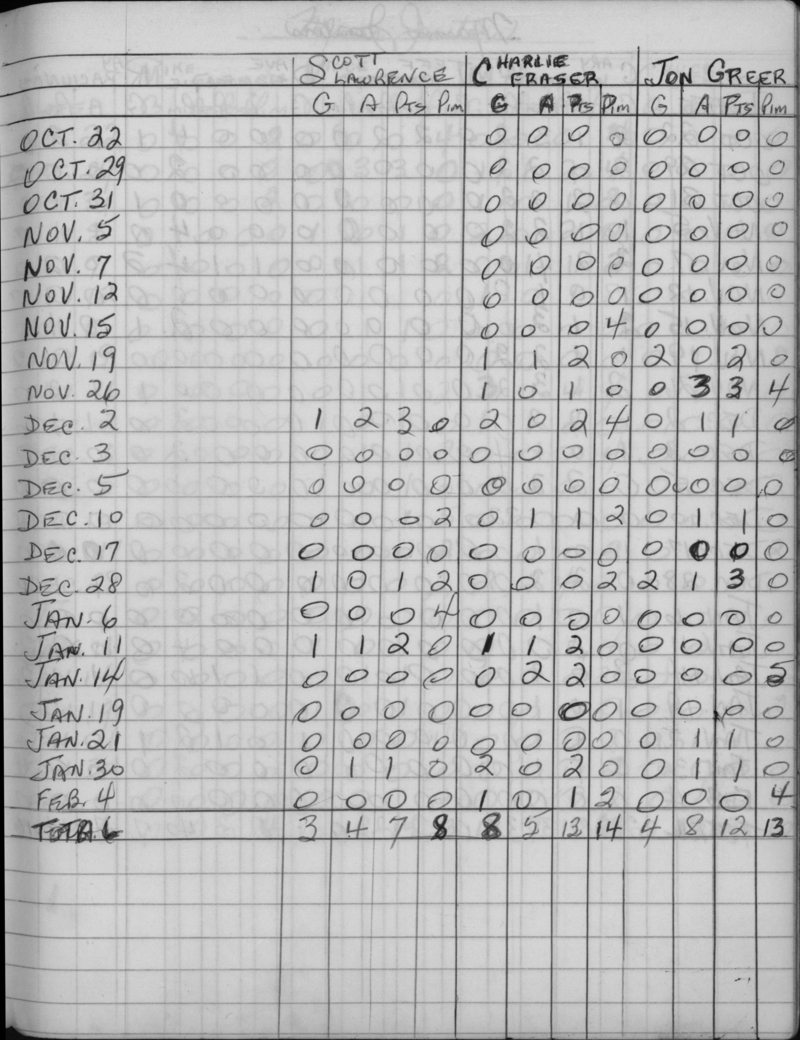 SCOTT LAWRENCE CHARLIE FRASER JON GREER
G A PTS PIM G A PTS PIM G A PTS PIM
OCT. 22 0 0 0 0 0 0 0 0
OCT. 29 0 0 0 0 0 0 0 0
OCT. 31 0 0 0 0 0 0 0 0
NOV. 5 0 0 0 0 0 0 0 0
NOV. 7 0 0 0 0 0 0 0 0
NOV. 12 0 0 0 0 0 0 0 0
NOV. 15 0 0 0 4 0 0 0 0
NOV. 19 1 1 2 0 2 0 2 0
NOV. 26 1 0 1 0 0 3 3 4
DEC. 2 1 2 3 0 2 0 2 4 0 1 1 0
DEC. 3 0 0 0 0 0 0 0 0 0 0 0 0
DEC. 5 0 0 0 0 0 0 0 0 0 0 0 0
DEC. 10 0 0 0 2 0 1 1 2 0 1 1 0
DEC. 17 0 0 0 0 0 0 0 0 0 0 0 0
DEC. 28 1 0 1 2 0 0 0 2 2 1 3 0
JAN. 6 0 0 0 4 0 0 0 0 0 0 0 0
JAN. 11 1 1 2 0 1 1 2 0 0 0 0 0
JAN. 14 0 0 0 0 0 2 2 0 0 0 0 5
JAN. 19 0 0 0 0 0 0 0 0 0 0 0 0
JAN. 21 0 0 0 0 0 0 0 0 0 1 1 0
JAN. 30 0 1 1 0 2 0 2 0 0 1 1 0
FEB. 4 0 0 0 0 1 0 1 2 0 0 0 4
TOTAL 3 4 7 8 8 5 13 14 4 8 12 13